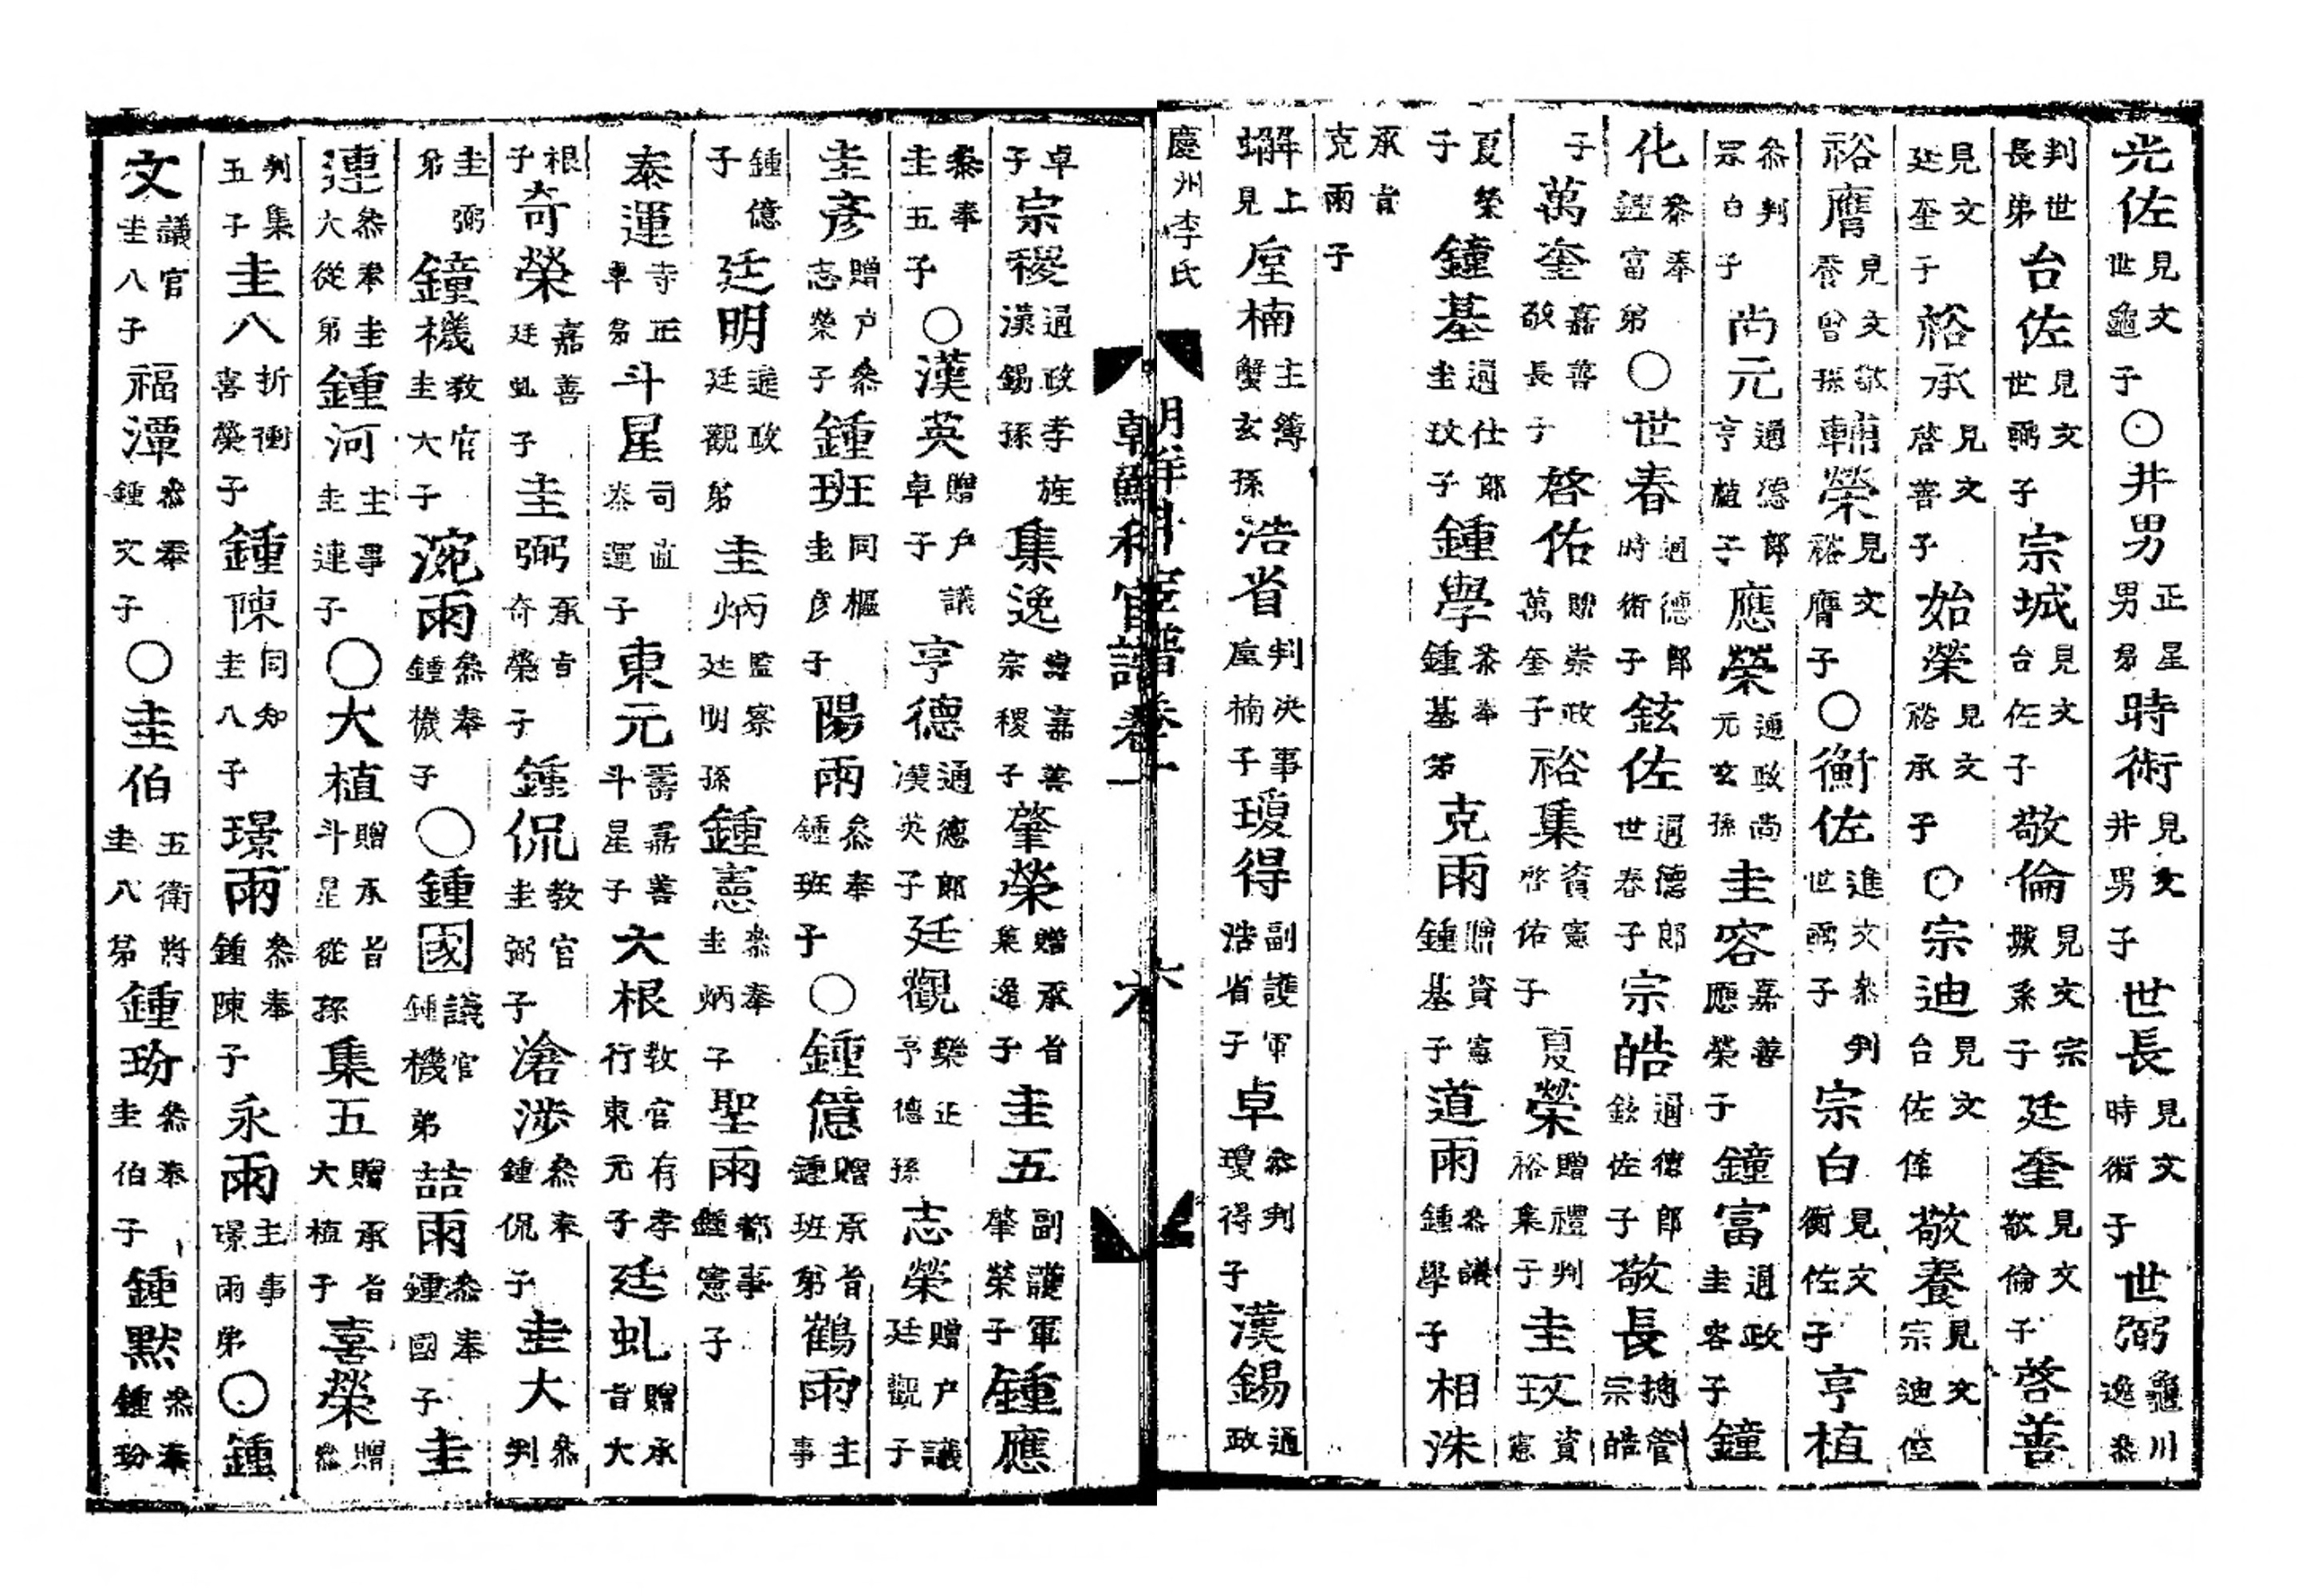 光佐見文世龜子○井男正星男弟時術見文井男子世長見文時術子世弼龜川逸參
判世長弟台佐見文世彌子宗城見文台佐子敬倫見文宗城系子廷奎見文敬倫子啓善
見文廷奎子裕承見文啓善子始榮見文裕承子○宗迪見文台佐侄敬養見文宗迪侄
裕膺見文敬養曾孫輔榮見文裕膺子○衡佐進文參判世彌子宗白見文衡佐子亨植
參判宗白子尚元通德郎亨植子應榮通政尚元玄孫圭容嘉善應榮子鐘富通政圭容子鐘
化參奉鍾富弟○世春通德郎時術子鉉佐通德郎世春子宗皓通德郎鉉佐子敬長摠管宗皓
子萬奎嘉善敬長子啓佑贈崇政萬奎子裕集資憲啓佑子夏榮贈禮判裕集子圭玟資憲
夏榮子鐘基通仕郎圭玟子鍾學參奉鍾基弟克雨贈資憲鍾基子道雨參議鍾學子相洙
承旨克雨子
蠏見上垕楠主簿蟹玄孫浩省判決事垕楠子瓊得副護軍浩省子卓參判瓊得子漢錫通政
慶州李氏
朝鮮科宦譜卷一 六
卓子宗稷通政孝旌漢錫孫集逸壽嘉善宗稷子肇榮贈承旨集逸子圭五副護軍肇榮子鍾應
參奉圭五子○漢英贈戶議卓子亨德通德郎漢英子廷觀樂正亨德孫志榮贈戶議廷觀子
圭彥贈戶參志榮子鍾班同樞圭彥子陽雨參奉鍾班子○鍾億贈承旨鍾班弟鶴雨主事
鍾億子廷明通政廷觀弟圭炳監察廷明孫鍾憲參奉圭炳子聖雨都事鍾憲子
泰運寺正卓弟斗星司直泰運子東元壽嘉善斗星子大根教官有孝行東元子廷虬贈承旨大
根子奇榮嘉善廷虬子圭弼承旨奇榮子鍾侃教官圭弼子滄涉參奉鍾侃子圭大參判
圭弼弟鐘機教官圭大子涴雨參奉鍾機子○鍾國議官鍾機弟喆雨參奉鍾國子圭
連參奉圭大從弟鍾河主事圭連子○大植贈承旨斗星從孫集五贈承旨大植子喜榮贈參
判集五子圭八折衝喜榮子鍾陳同知圭八子璟雨參奉鍾陳子永雨主事璟雨弟○鍾
文議官圭八子福潭參奉鍾文子○圭伯五衛將圭八弟鍾玢參奉圭伯子鍾默參奉鍾玢